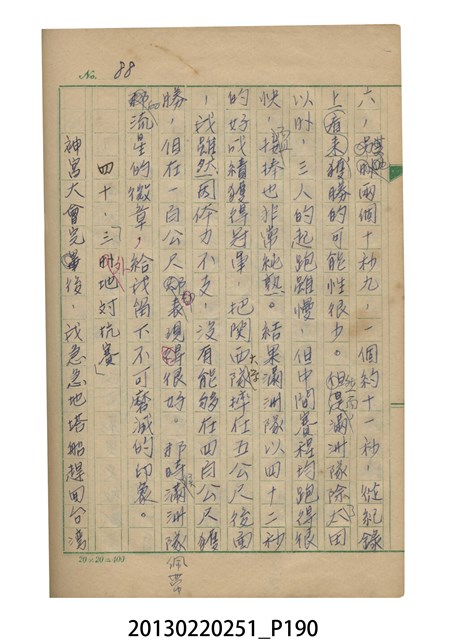 No. 88
六，兩個十秒九，一個約十一秒，從紀錄
上看來獲勝的可能性很少。但是滿洲隊除太田
以外，三人的起跑雖慢，但中間賽程均跑得很
快，接棒也非常純熟。結果滿洲隊以四十二秒
的好成績獲得冠軍，把關西大學隊摔在五公尺後面
，我雖然因体力不支，沒有能够在四百公尺獲
勝，但在一百公尺表現得很好。那時滿洲隊佩帶
流星的徽章，給我留下不可磨滅的印象。
四十、「三外地対抗賽」
神宮大會完畢後，我急急地塔船趕回台灣
20×20=400
20130220251_P190